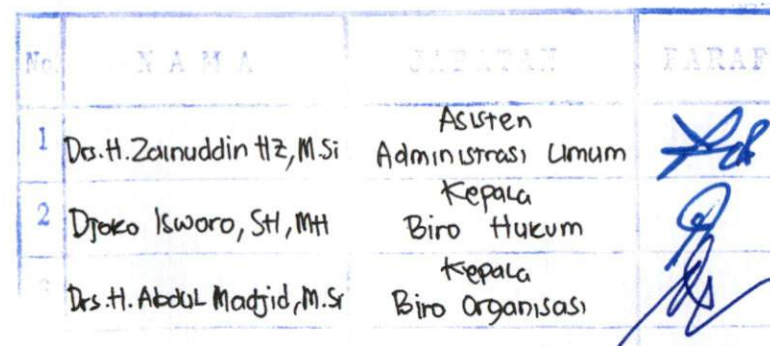 No. N A M A JABATAN PARAF
1 Drs.H.Zainuddin HZ, M.Si Asisten Administrasi Umum
2 Djoko Isworo, SH, MH Kepala Biro Hukum
3 Drs.H. Abdul Madjid, M.Si Kepala Biro Organisasi